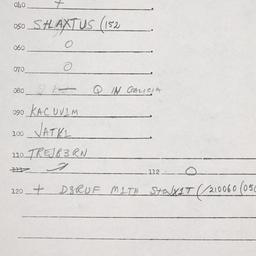 040 +
050 SHAXTUS (152
060 O
070 O
080 Q IN GALICIA
090 KACUV1M
100 JATKL
110 TREJB3RN
112 O
120 + D3RUF M1TH (/210060 (05